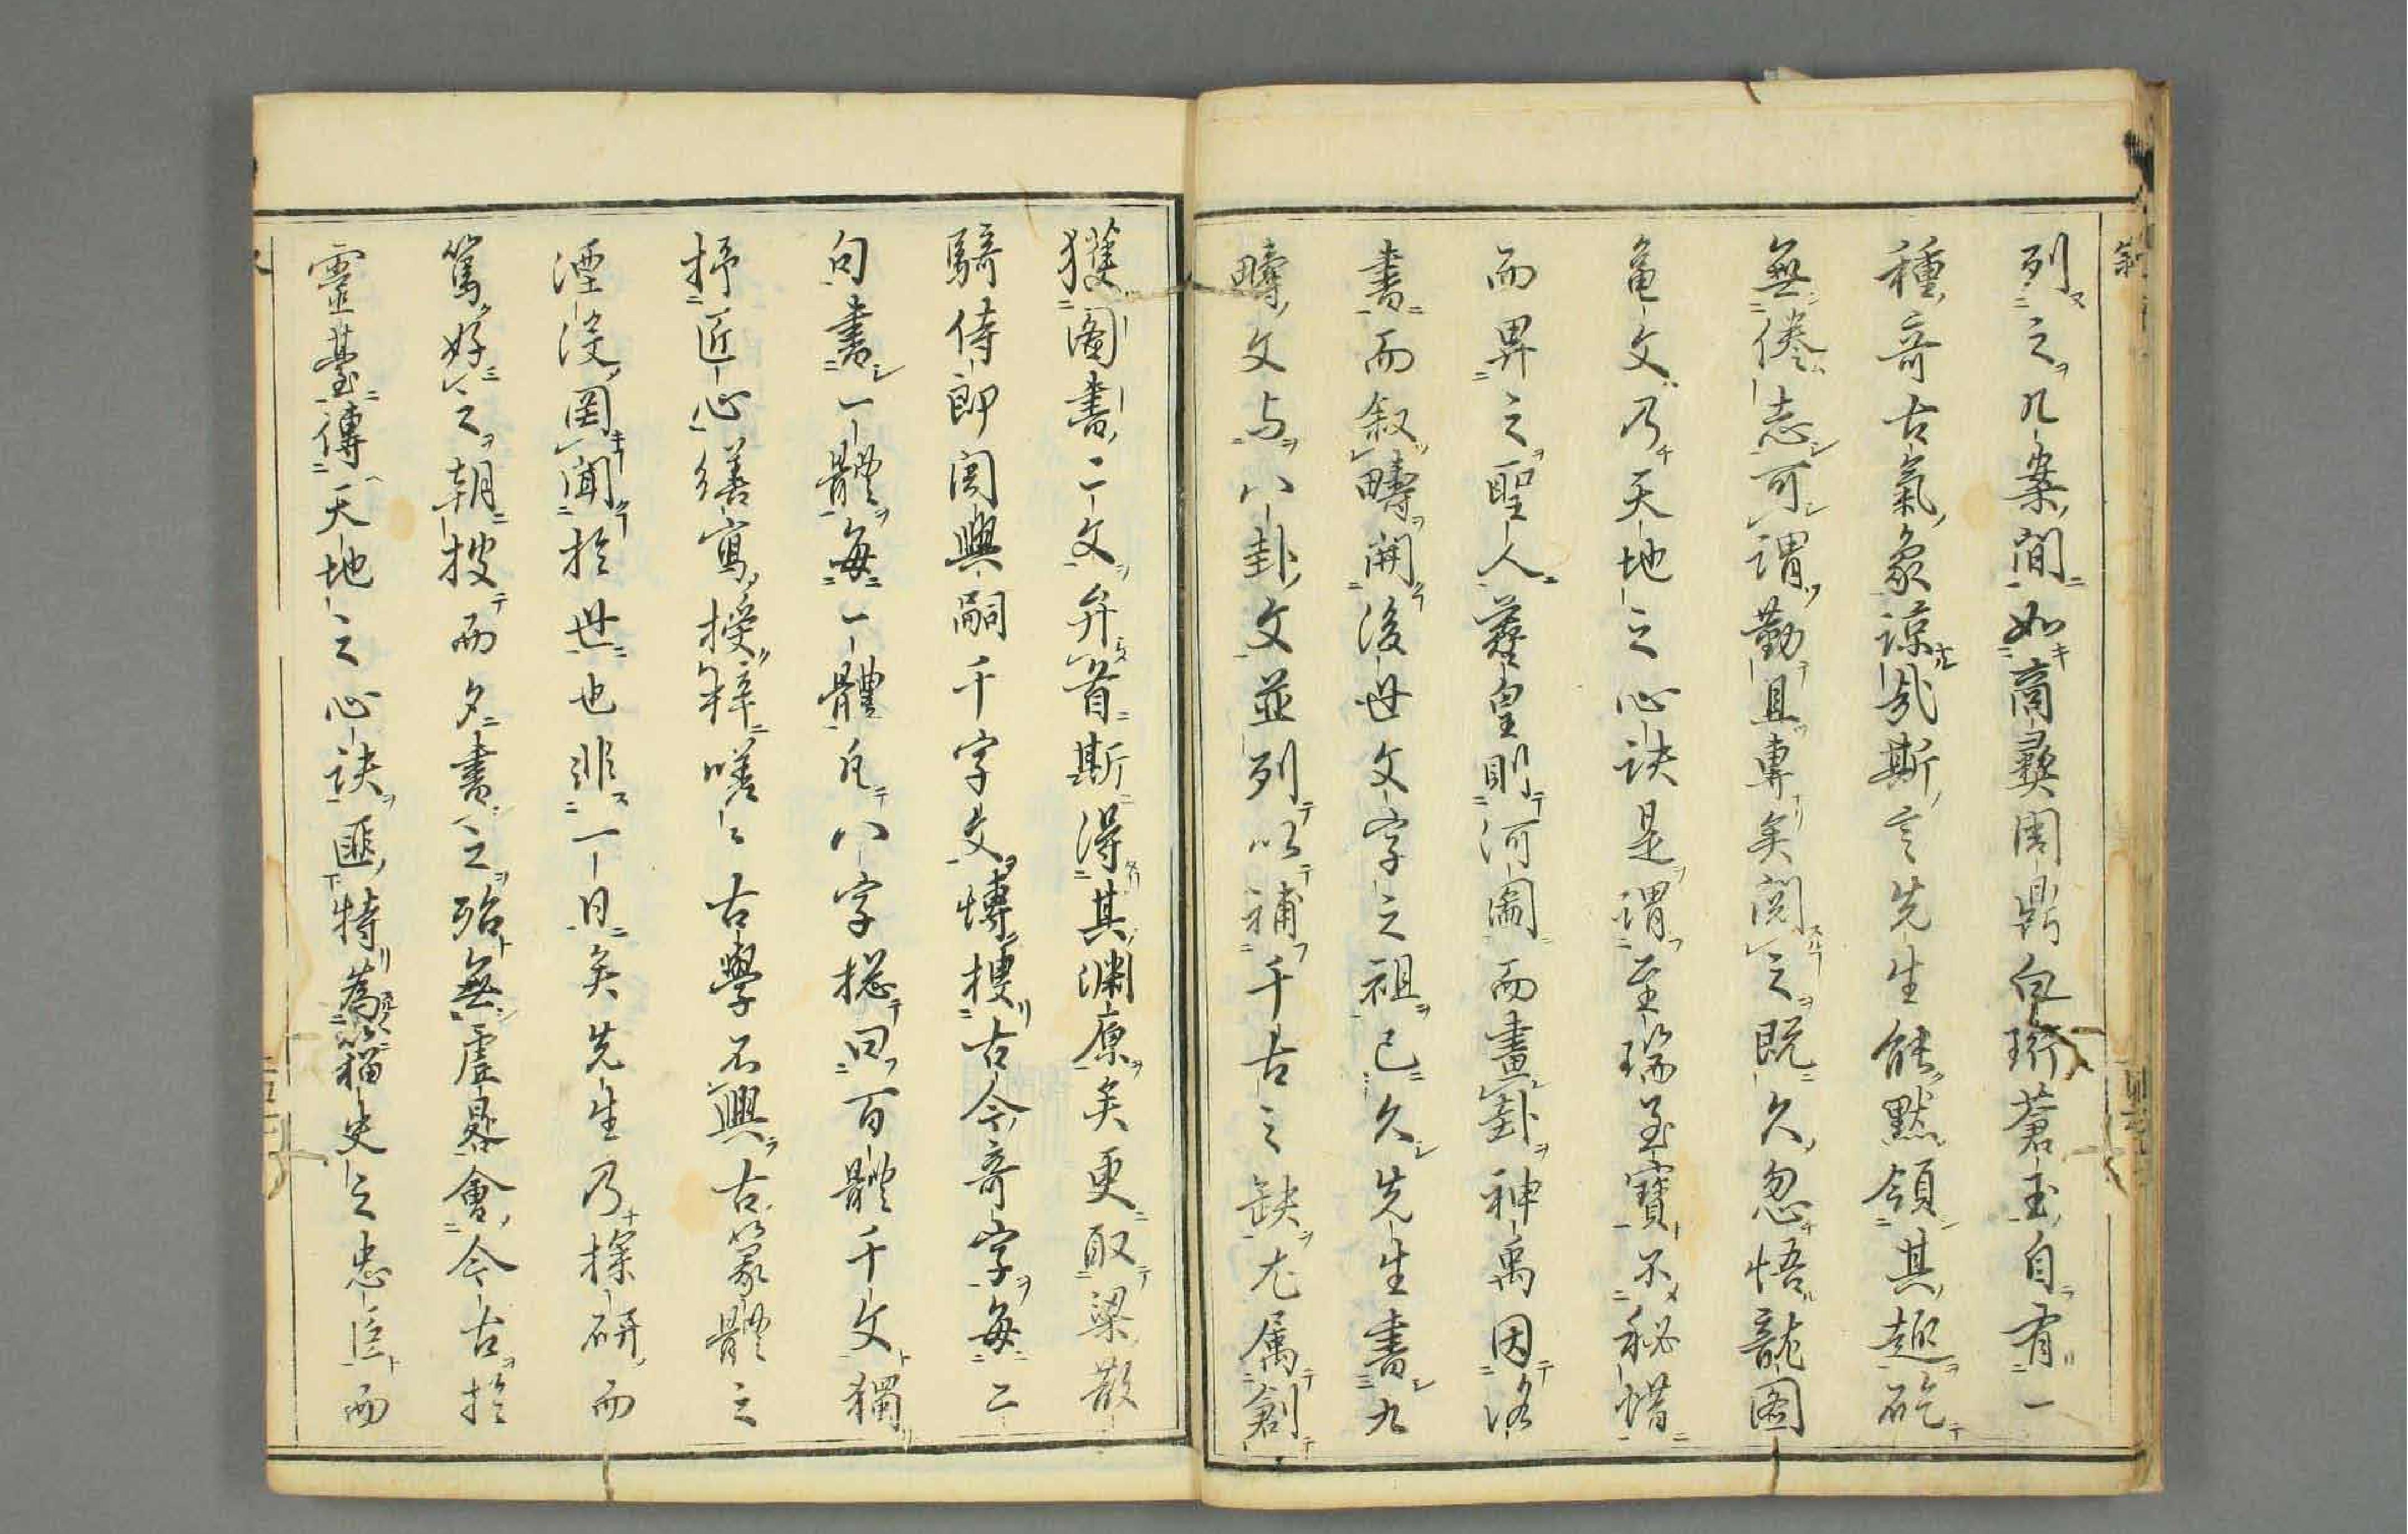 列之几案間如商彝周鼎白珩蒼玉自有一
種奇古氣象諒哉斯言先生能默領其趣矻
無倦志可謂勤且專矣閲之既久忽悟龍圖
龜文乃天地之心訣是謂至瑞至寶不秘惜
而畀之聖人羲皇則河圖而畫卦神禹因洛
書而叙疇開後世文字之祖已久先生書九
疇文与八卦文並列以補千古之缺尤属創
獲圖書二文弁首斯得其淵源矣更取梁散
騎侍郎周興嗣千字文博搜古今奇字每二
句書一體每一體凡八字摠曰百體千文獨
抒匠心繕寫授梓嗟〻古學不興古篆體之
湮没罔聞於世也非一日矣先生乃探研而
篤好之朝搜而夕書之殆無虚晷會今古於
靈臺傳天地之心訣匪特為籀史之忠臣而